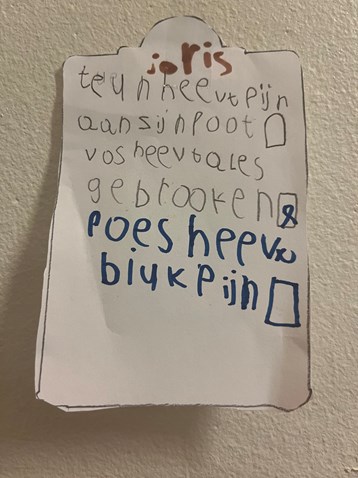 joris
teun heevt pijn
aan zijn poot
vos heevt ales
gebrooken
poes heevt
biukpijn